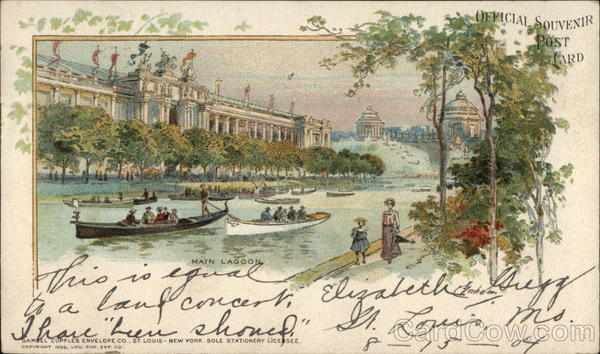 OFFICIAL SOUVENIR
POST
CARD
MAIN LAGOON
This is equal
to a land concert.
I have "been showed."
Elizabeth Gregg
St. Louis, Mo.
8 15 04
SAMUEL CUPPLES ENVELOPE CO., ST. LOUIS - NEW YORK. SOLE STATIONERY LICENSEE.
COPYRIGHT 1903, LOU. PUR. EXP. CO.
CardCow.com